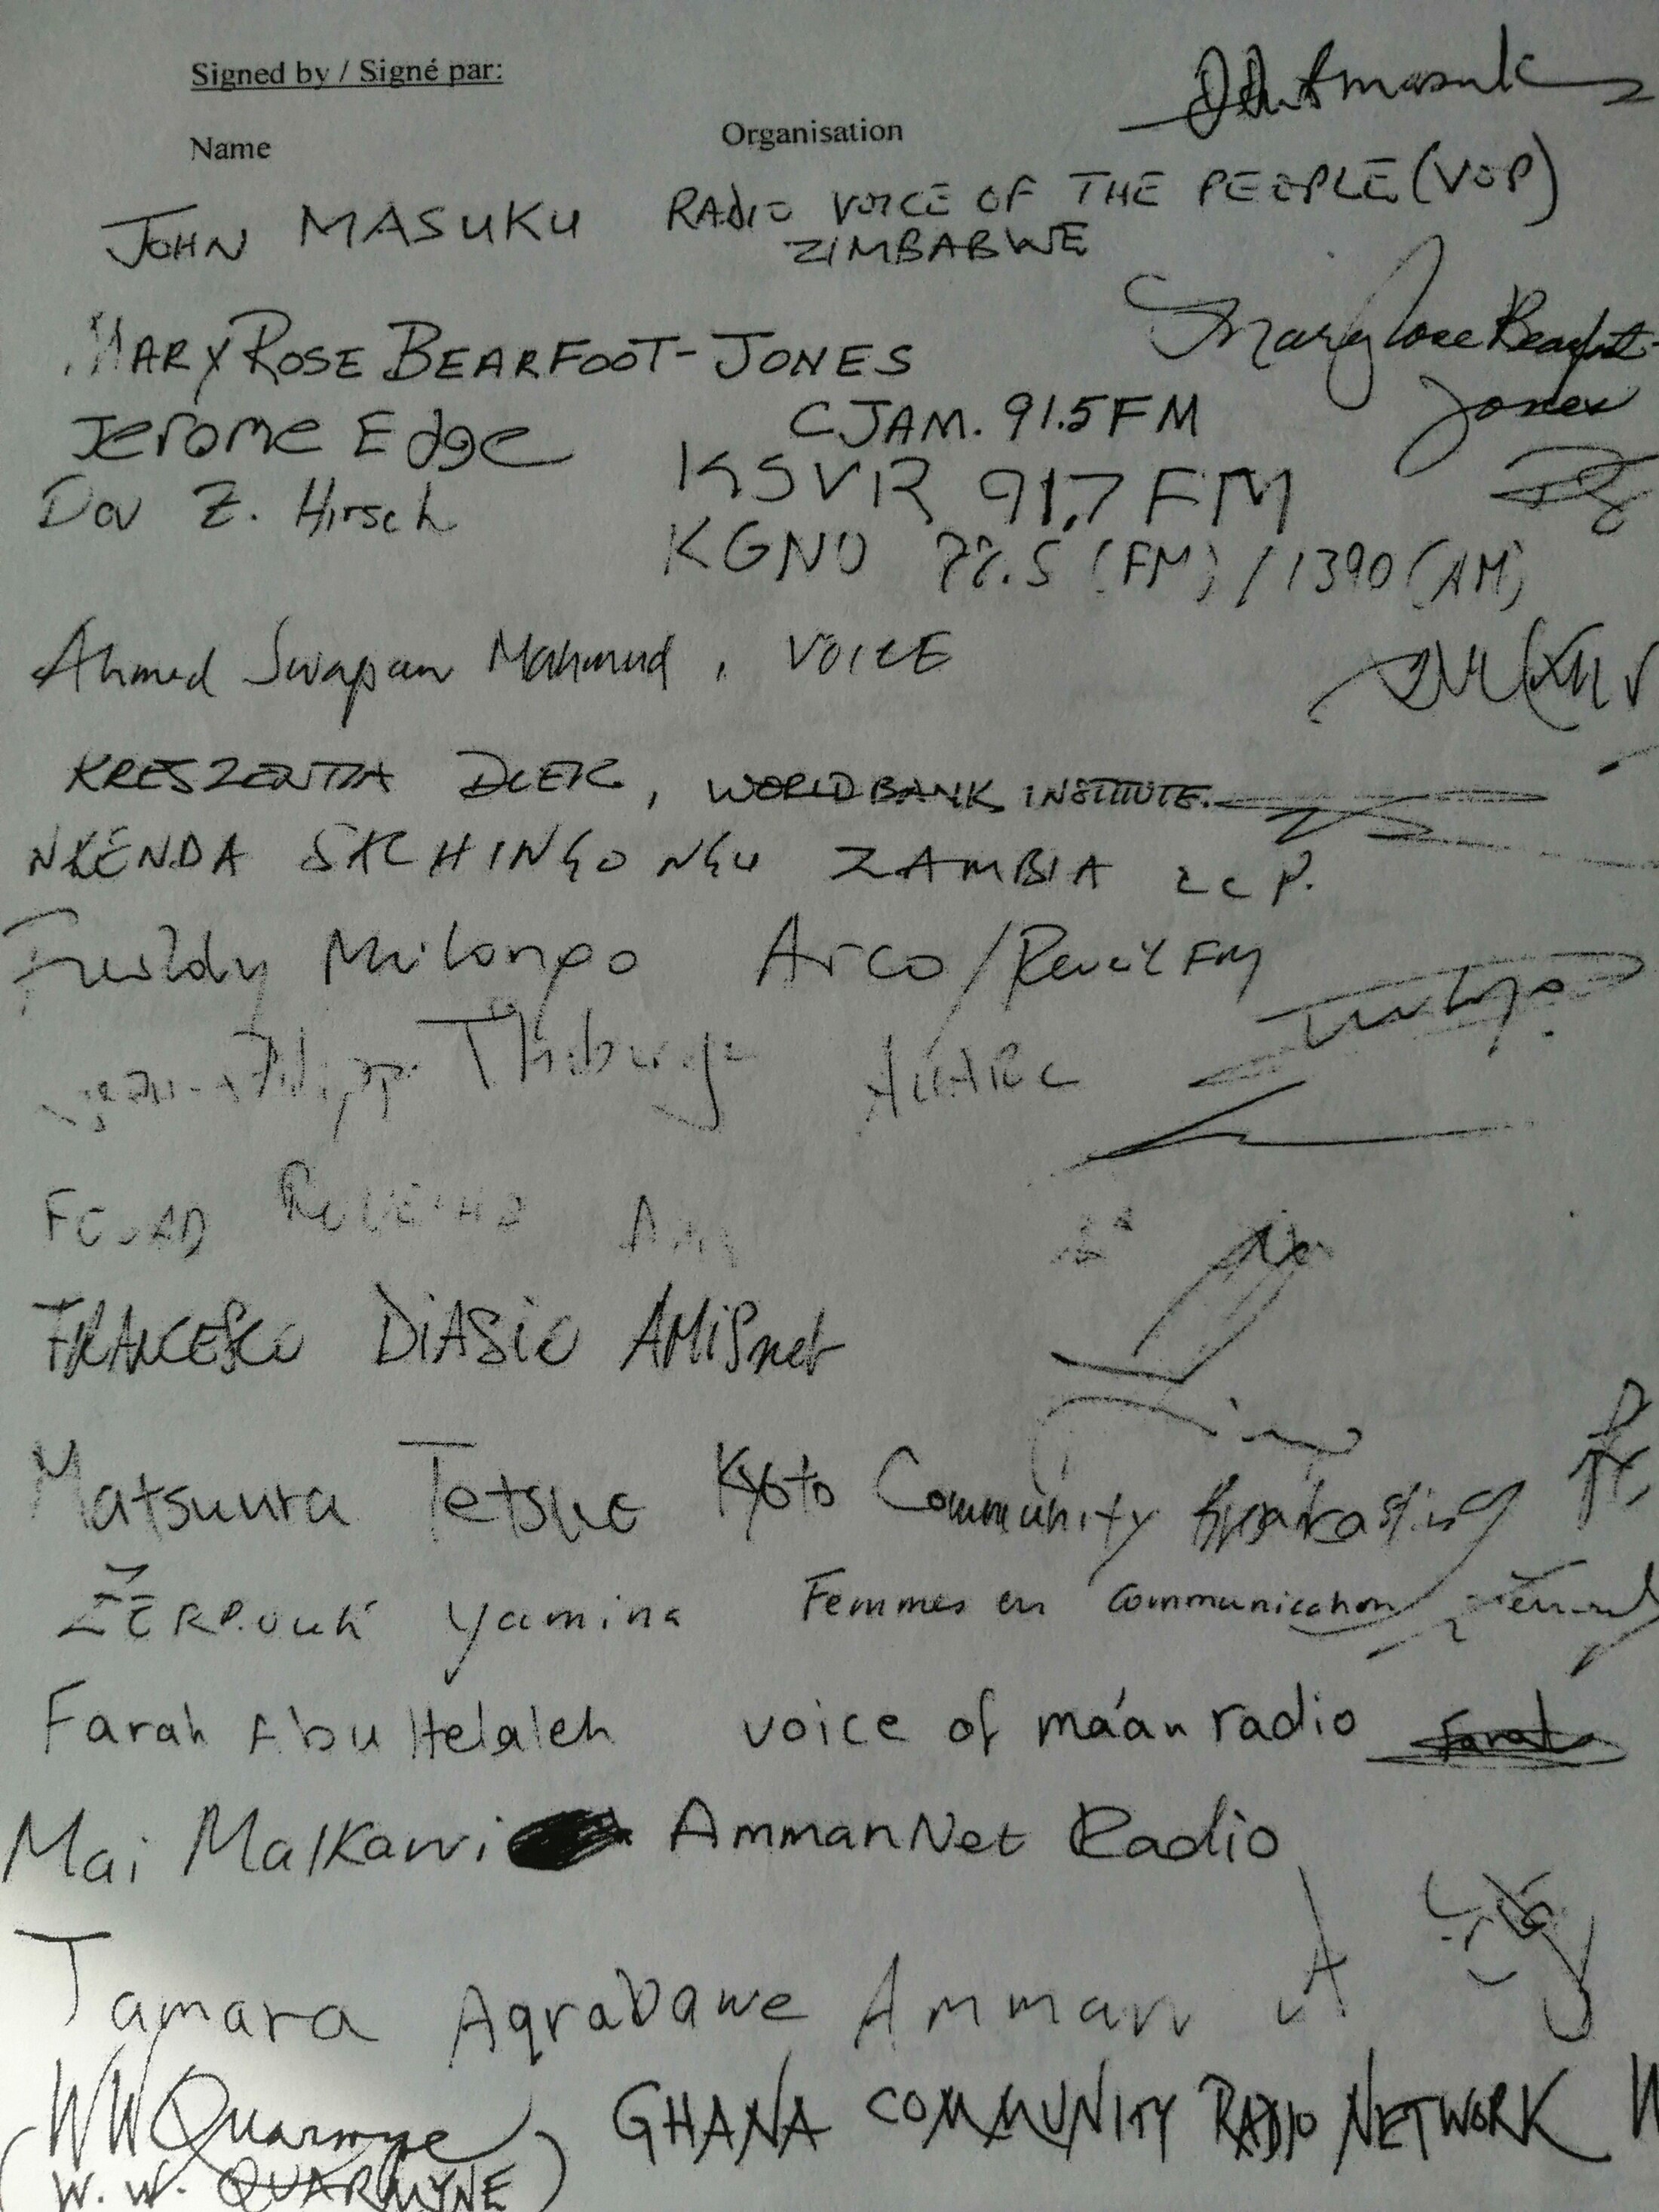 Signed by / Signé par:
Name Organisation
JOHN MASUKU RADIO VOICE OF THE PEOPLE (VOP)
ZIMBABWE
MARY ROSE BEARFOOT-JONES Mary Rose Bearfoot-
Jones
CJAM. 91.5FM
Jerome Edge KSVR 91.7 FM
Dov Z. Hirsch KGNU (FM) / 1390 (AM)
Ahmed Swapan Mahmud, VOICE
KRESZENTIA DUER, WORLD BANK INSTITUTE.
ZAMBIA
Freddy Mulongo Arco/Réveil FM
AMARC
FOUAD
FRANCESCO DIASIO AMISnet
Matsuura Tetsuo Kyoto Community Broadcasting
ZERROUKI Yamina Femmes en Communication
Farah Abu Helaleh voice of má'an radio Farah
Mai Malkawi AmmanNet Radio
Tamara Aqrabawe Amman
WWQuarmyne GHANA COMMUNITY RADIO NETWORK
(W. W. QUARMYNE)